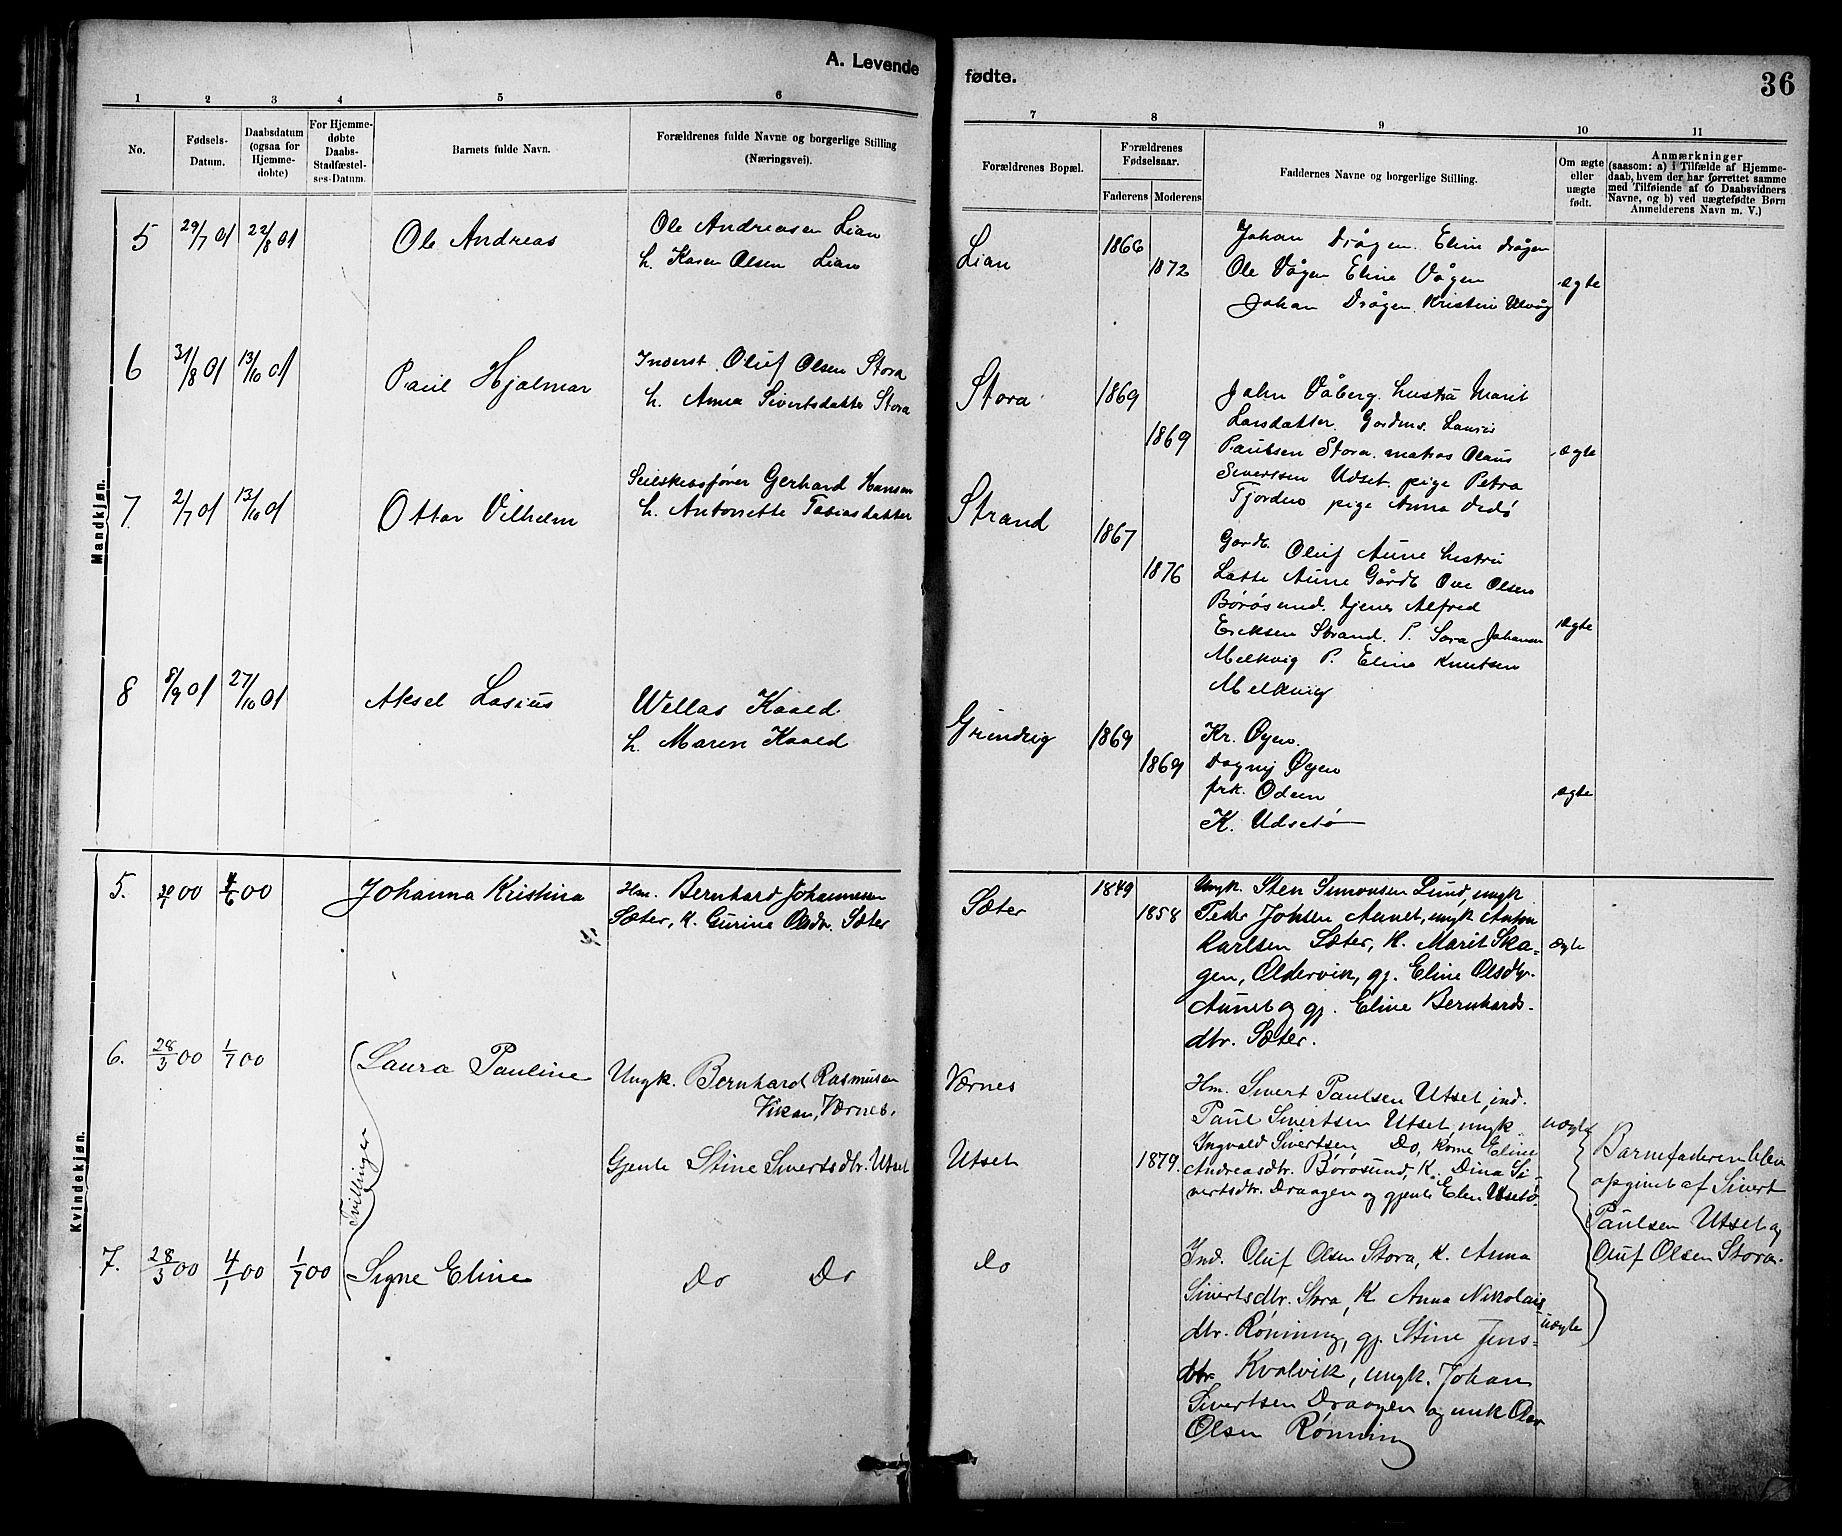 A. Levende
fødte.
36
1 2 3 4 5 6
7 8 9 10 11
No.
Fødsels-
Datum.
Daabsdatum
(ogsaa for
Hjemme-
døbte)
For Hjemme-
døbte
Daabs-
Stadfæstel-
ses-Datum.
Barnets fulde Navn.
Forældrenes fulde Navne og borgerlige Stilling
(Næringsvei).
Forældrenes Bopæl.
Forældrenes
Fødselsaar.
Faderens Moderens
Faddernes Navne og borgerlige Stilling.
Om ægte
eller
uægte
født.
Anmærkninger
(saasom: a) i Tilfælde af Hjemme-
daab, hvem der har forrettet samme
med Tilføiende af to Daabsvidners
Navne, og b) ved uægtefødte Børn
Anmelderens Navn m. V.)
Mandkjøn.
5 29/7 01 22/8 01 Ole Andreas
Ole Andreasen Lian
h. Karen Olsen Lian
Lian 1866 1872
Johan Drågen. Eline Drågen
Ole Vågen Eline Vågen
Johan Drågen Kristine Ulvåg
ægte
6 31/8 01 13/10 01 Paul Hjalmar
Inderst. Oluf Olsen Stora
h. Anna Sivertsdatter Stora
Stora 1869 1869
John Våberg. hustru Marit
Larsdatter. Gardms. Laurits
Paulsen Stora. matros Olaus
Sivertsen Udset. pige Petra
Fjorden pige Anna
ægte
7. 2/7 01 13/10 01 Ottar Vilhelm
Seilskibsfører Gerhard Hansen
h. Antonette Tobiasdatter
Strand 1867 1876
Gardb. Oluf Aune hustru
Lotte Aune Gårdb Ove Olsen
Børøsund. tjener Alfred
Eriksen Strand. P. Sara Johansen
Melkvig P. Eline Knutsen
Melkvig
ægte
8 8/9 01 27/10 01 Aksel Lasius
Wellas Kaald
h. Maren Kaald
Grindvig 1869 1869
Kr. Øyen.
Dagny Øyen
frk. Odeen
K. Udsetø
ægte
Kvindekjøn.
5. 00 4/6 00 Johanna Kristina
Hm. Bernhard Johannessen
Sæter, K. Gurina Olsdr. Sæter
Sæter 1849 1858
Ungk. Sten Simonsen Lund, ungk
Peder Johsen Aunet, ungk Anton
Karlsen Sæter, K. Marit Ska-
gen, Oldervik, gj. Eline Olsdtr.
Aunet og gj. Eline Bernhards-
dtr. Sæter.
ægte
6. 28/3 00 1/7 00 Laura Pauline
Ungk. Bernhard Rasmusen
Vikan, Værnes.
Gjente Stine Sivertsdtr. Utset
Værnes
Utset 1879.
Hm. Sivert Paulsen Utset, ind.
Paul Sivertsen Utset, ungk
Ingvald Sivertsen, Do, kone Eline
Andreasdtr. Børøsund, K. Dina Si-
vertsdtr. Draagen og gjente Elen Utsetø.
uægte
Tvillinger
Barnefaderen blev
opgivet af Sivert
Paulsen Utset og
Oluf Olsen Stora.
7. 28/3 00 4/1 00 1/7 00 Signe Eline
Do Do
Do
Ind. Oluf Olsen Stora, K. Anna
Sivertsdtr. Stora, K Anna Nikolais
dtr. Rønning, gj. Stine Jens-
dtr Kvalvik, ungk. Johan
Sivertsen Draagen og unk
Olsen Rønning
uægte